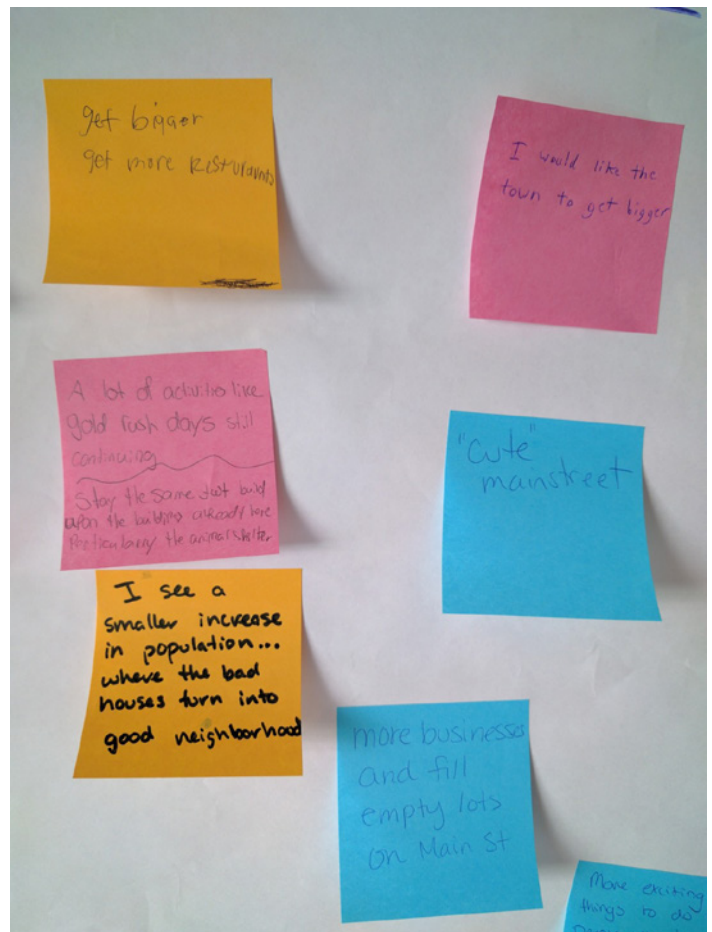 get bigger
get more Resturaunts
I would like the
town to get bigger
A lot of activities like
gold rush days still
continuing
Stay the same just build
upon the building already here
Particularry the animal shelter
"cute"
mainstreet
I see a
smaller increase
in population...
where the bad
houses turn into
good neighborhood
more businesses
and fill
empty lots
on Main St
More exciting
things to do